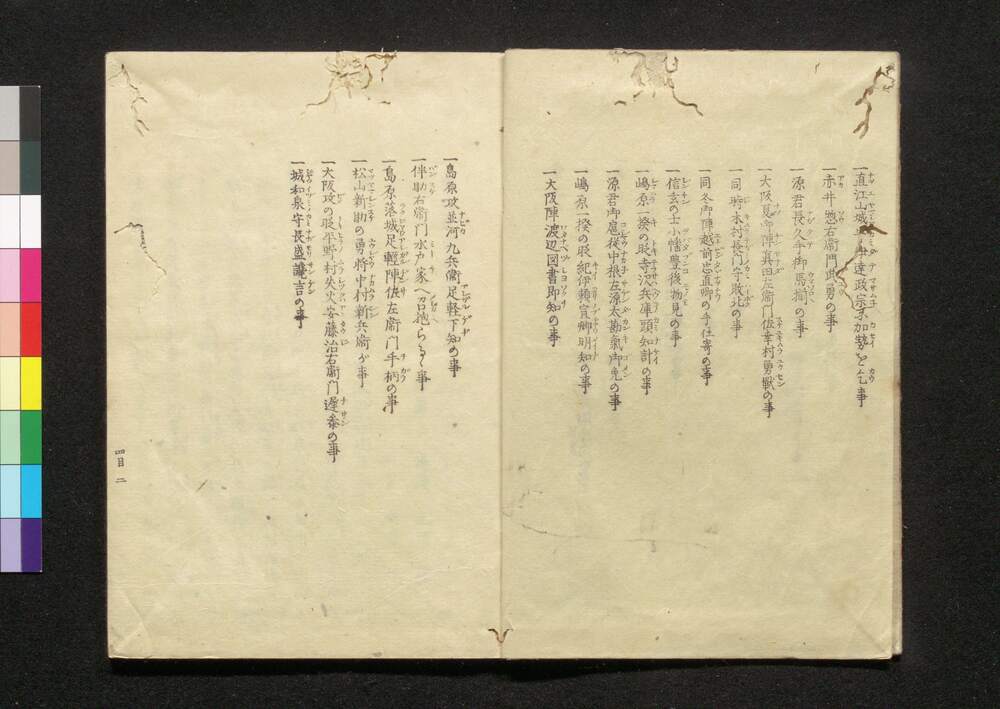 一直江山城守伊達政宗え加勢を乞事
一赤井悪右衛門武勇の事
一源君長久手御馬揃の事
一大阪夏御陣真田左衛門佐幸村勇戦の事
一同時木村長門守敗北の事
一同冬御陣越前忠直卿の手仕寄の事
一信玄の士小幡豊後物見の事
一嶋原一揆の時寺沢兵庫頭知計の事
一源君御扈従中根左源太勘氣御免の事
一嶋原一揆の時紀伊頼宣卿明知の事
一大阪陣渡辺図書即知の事
一島原攻並河九兵衛足軽下知の事
一伴助右衛門水戸家へ召抱らるゝ事
一島原落城足軽陣佐左衛門手柄の事
一松山新助の勇将中村新兵衛が事
一大阪攻の時平野村失火安藤治右衛門遅参の事
一城和泉守長盛讒言の事
四目 二